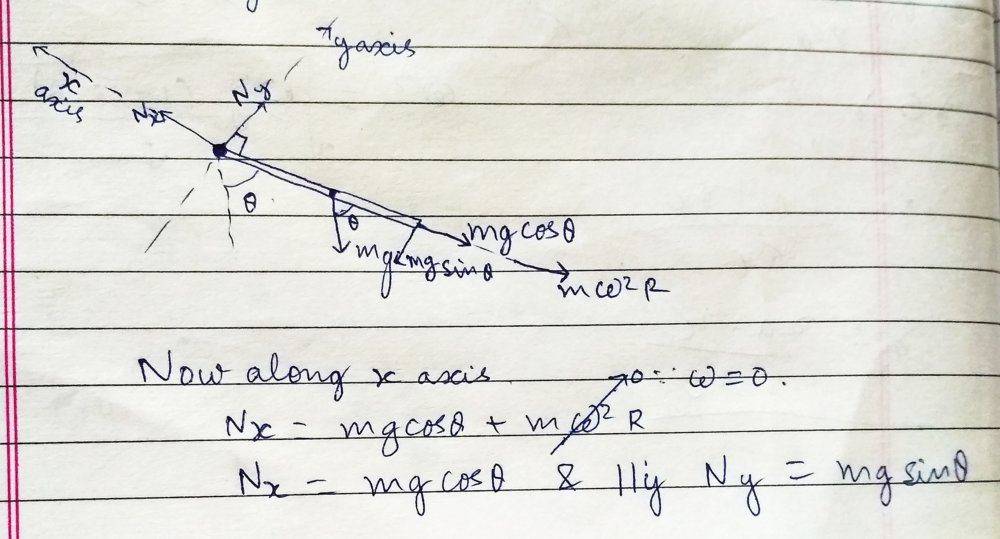 y axis
x
axis
Nx
Ny
θ
θ
mg
mg sinθ
mg cosθ
mω²R
Now along x axis
0 ∵ ω = 0.
Nx = mg cosθ + mω²R
Nx = mg cosθ & ||ly Ny = mg sinθ